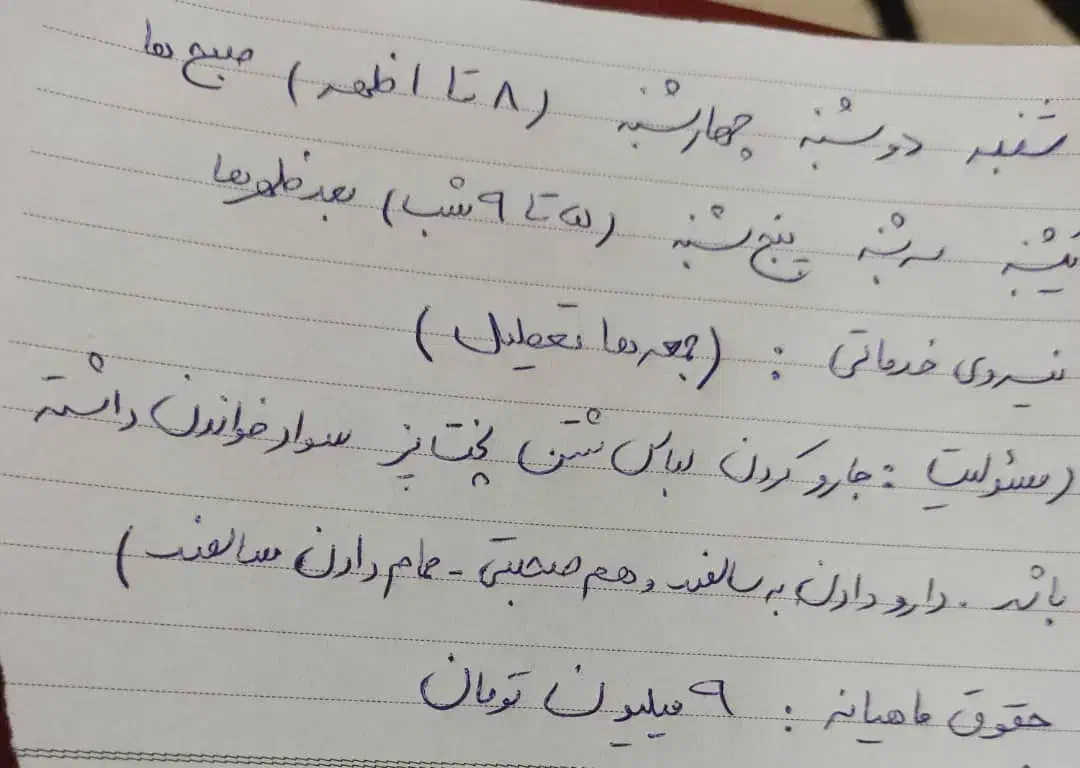 شنبه دوشنبه چهارشنبه (۸ تا ۱ ظهر) صبح ها
یکشنبه سه شنبه پنج شنبه (۵ تا ۹ شب) بعدظهرها
نیروی خدماتی : (جمعه ها تعطیل)
(مسئولیت : جارو کردن لباس شستن پخت پز سواد خواندن داشته
باشد . دارو دادن به سالمند و هم صحبتی - حمام دادن سالمند)
حقوق ماهیانه : ۹ میلیون تومان